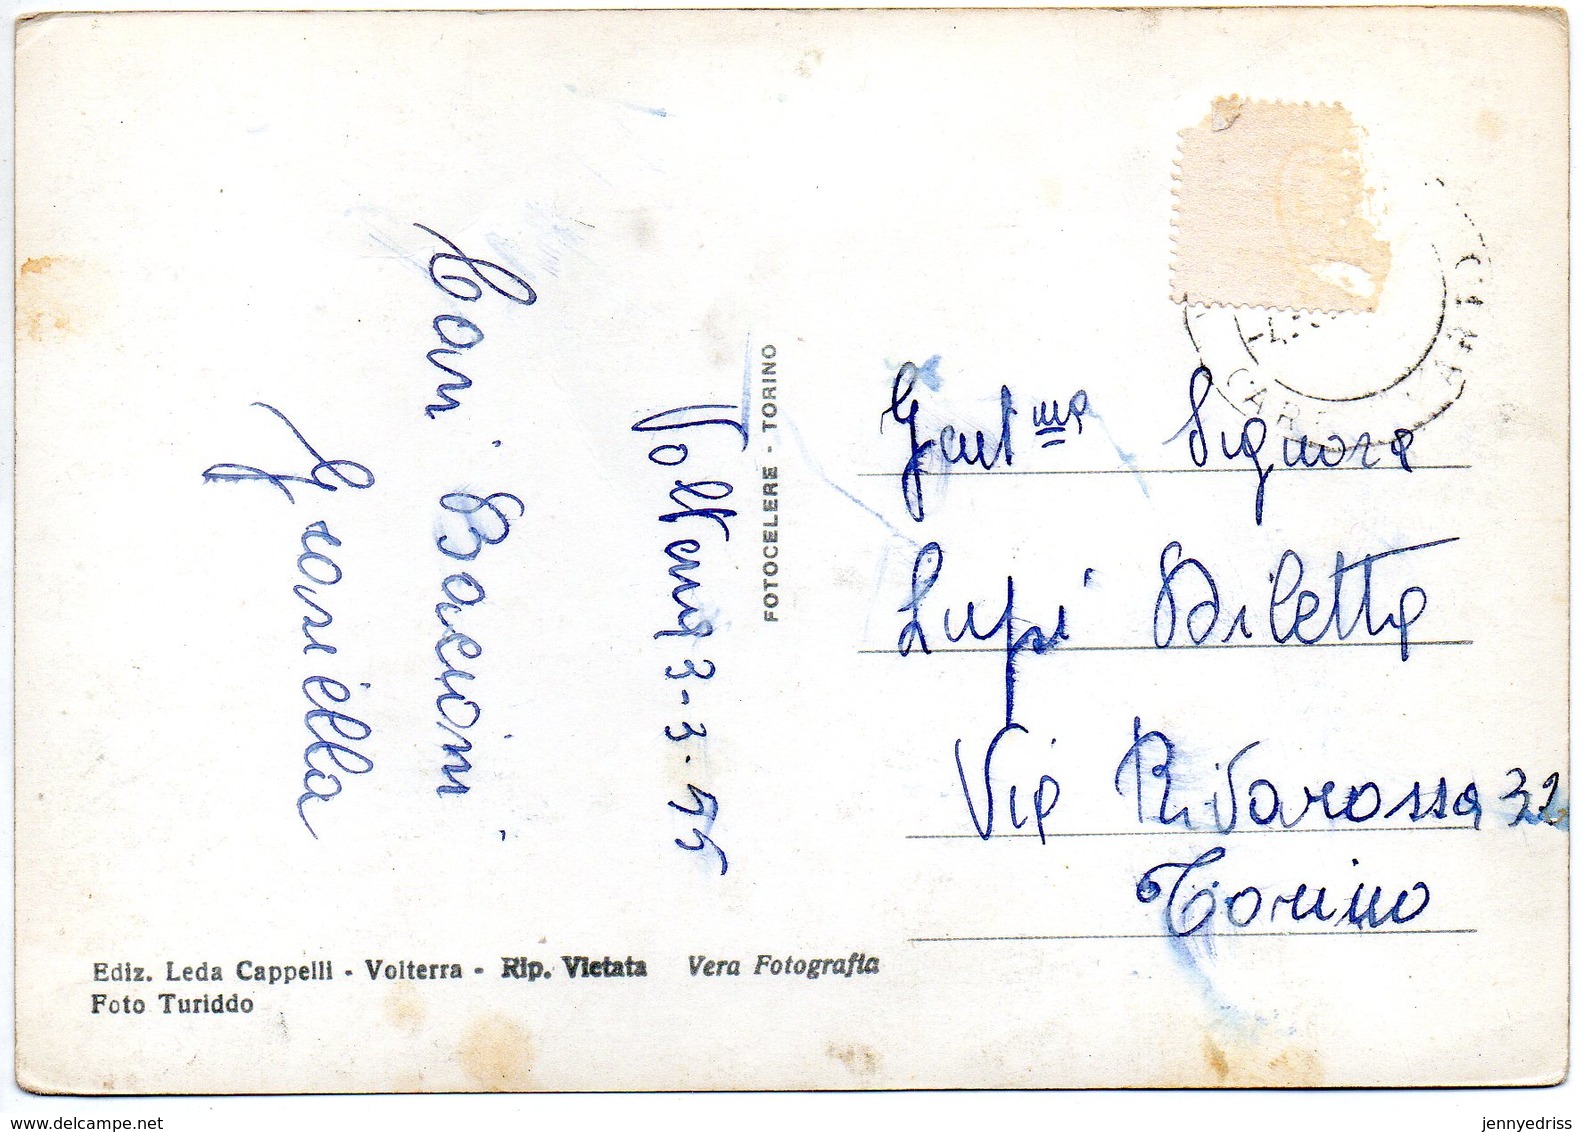 Volterra 3-3-55
Cari Bacioni
Graziella
FOTOCELERE - TORINO
Gent.ma Signora
Lupi Diletta
Via Rivarossa 32
Torino
Ediz. Leda Cappelli - Volterra - Rip. Vietata Vera Fotografia
Foto Turiddo
www.delcampe.net
jennyedriss